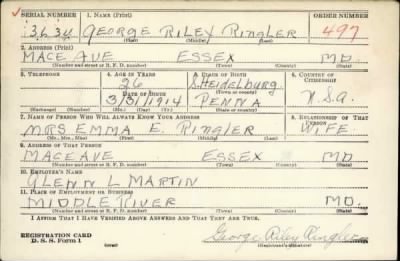 SERIAL NUMBER 1. NAME (Print) ORDER NUMBER
3634 GEORGE RILEY RINGLER 497
(First) (Middle) (Last)
2. ADDRESS (Print)
MACE AVE ESSEX MD.
(Number and street or R. F. D. number) (Town) (County) (State)
3. TELEPHONE 4. AGE IN YEARS 5. PLACE OF BIRTH 6. COUNTRY OF CITIZENSHIP
26 S. HEIDELBURG
DATE OF BIRTH (Town or county)
3/31/1914 PENNA U.S.A.
(Exchange) (Number) (Mo.) (Day) (Yr.) (State or country)
7. NAME OF PERSON WHO WILL ALWAYS KNOW YOUR ADDRESS 8. RELATIONSHIP OF THAT PERSON
MRS EMMA E. RINGLER WIFE
(Mr., Mrs., Miss) (First) (Middle) (Last)
9. ADDRESS OF THAT PERSON
MACE AVE ESSEX MD
(Number and street or R. F. D. number) (Town) (County) (State)
10. EMPLOYER'S NAME
GLENN L MARTIN
11. PLACE OF EMPLOYMENT OR BUSINESS
MIDDLE RIVER MD.
(Number and street or R. F. D. number) (Town) (County) (State)
I AFFIRM THAT I HAVE VERIFIED ABOVE ANSWERS AND THAT THEY ARE TRUE.
REGISTRATION CARD
D. S. S. Form 1 George Riley Ringler
(Registrant's signature)